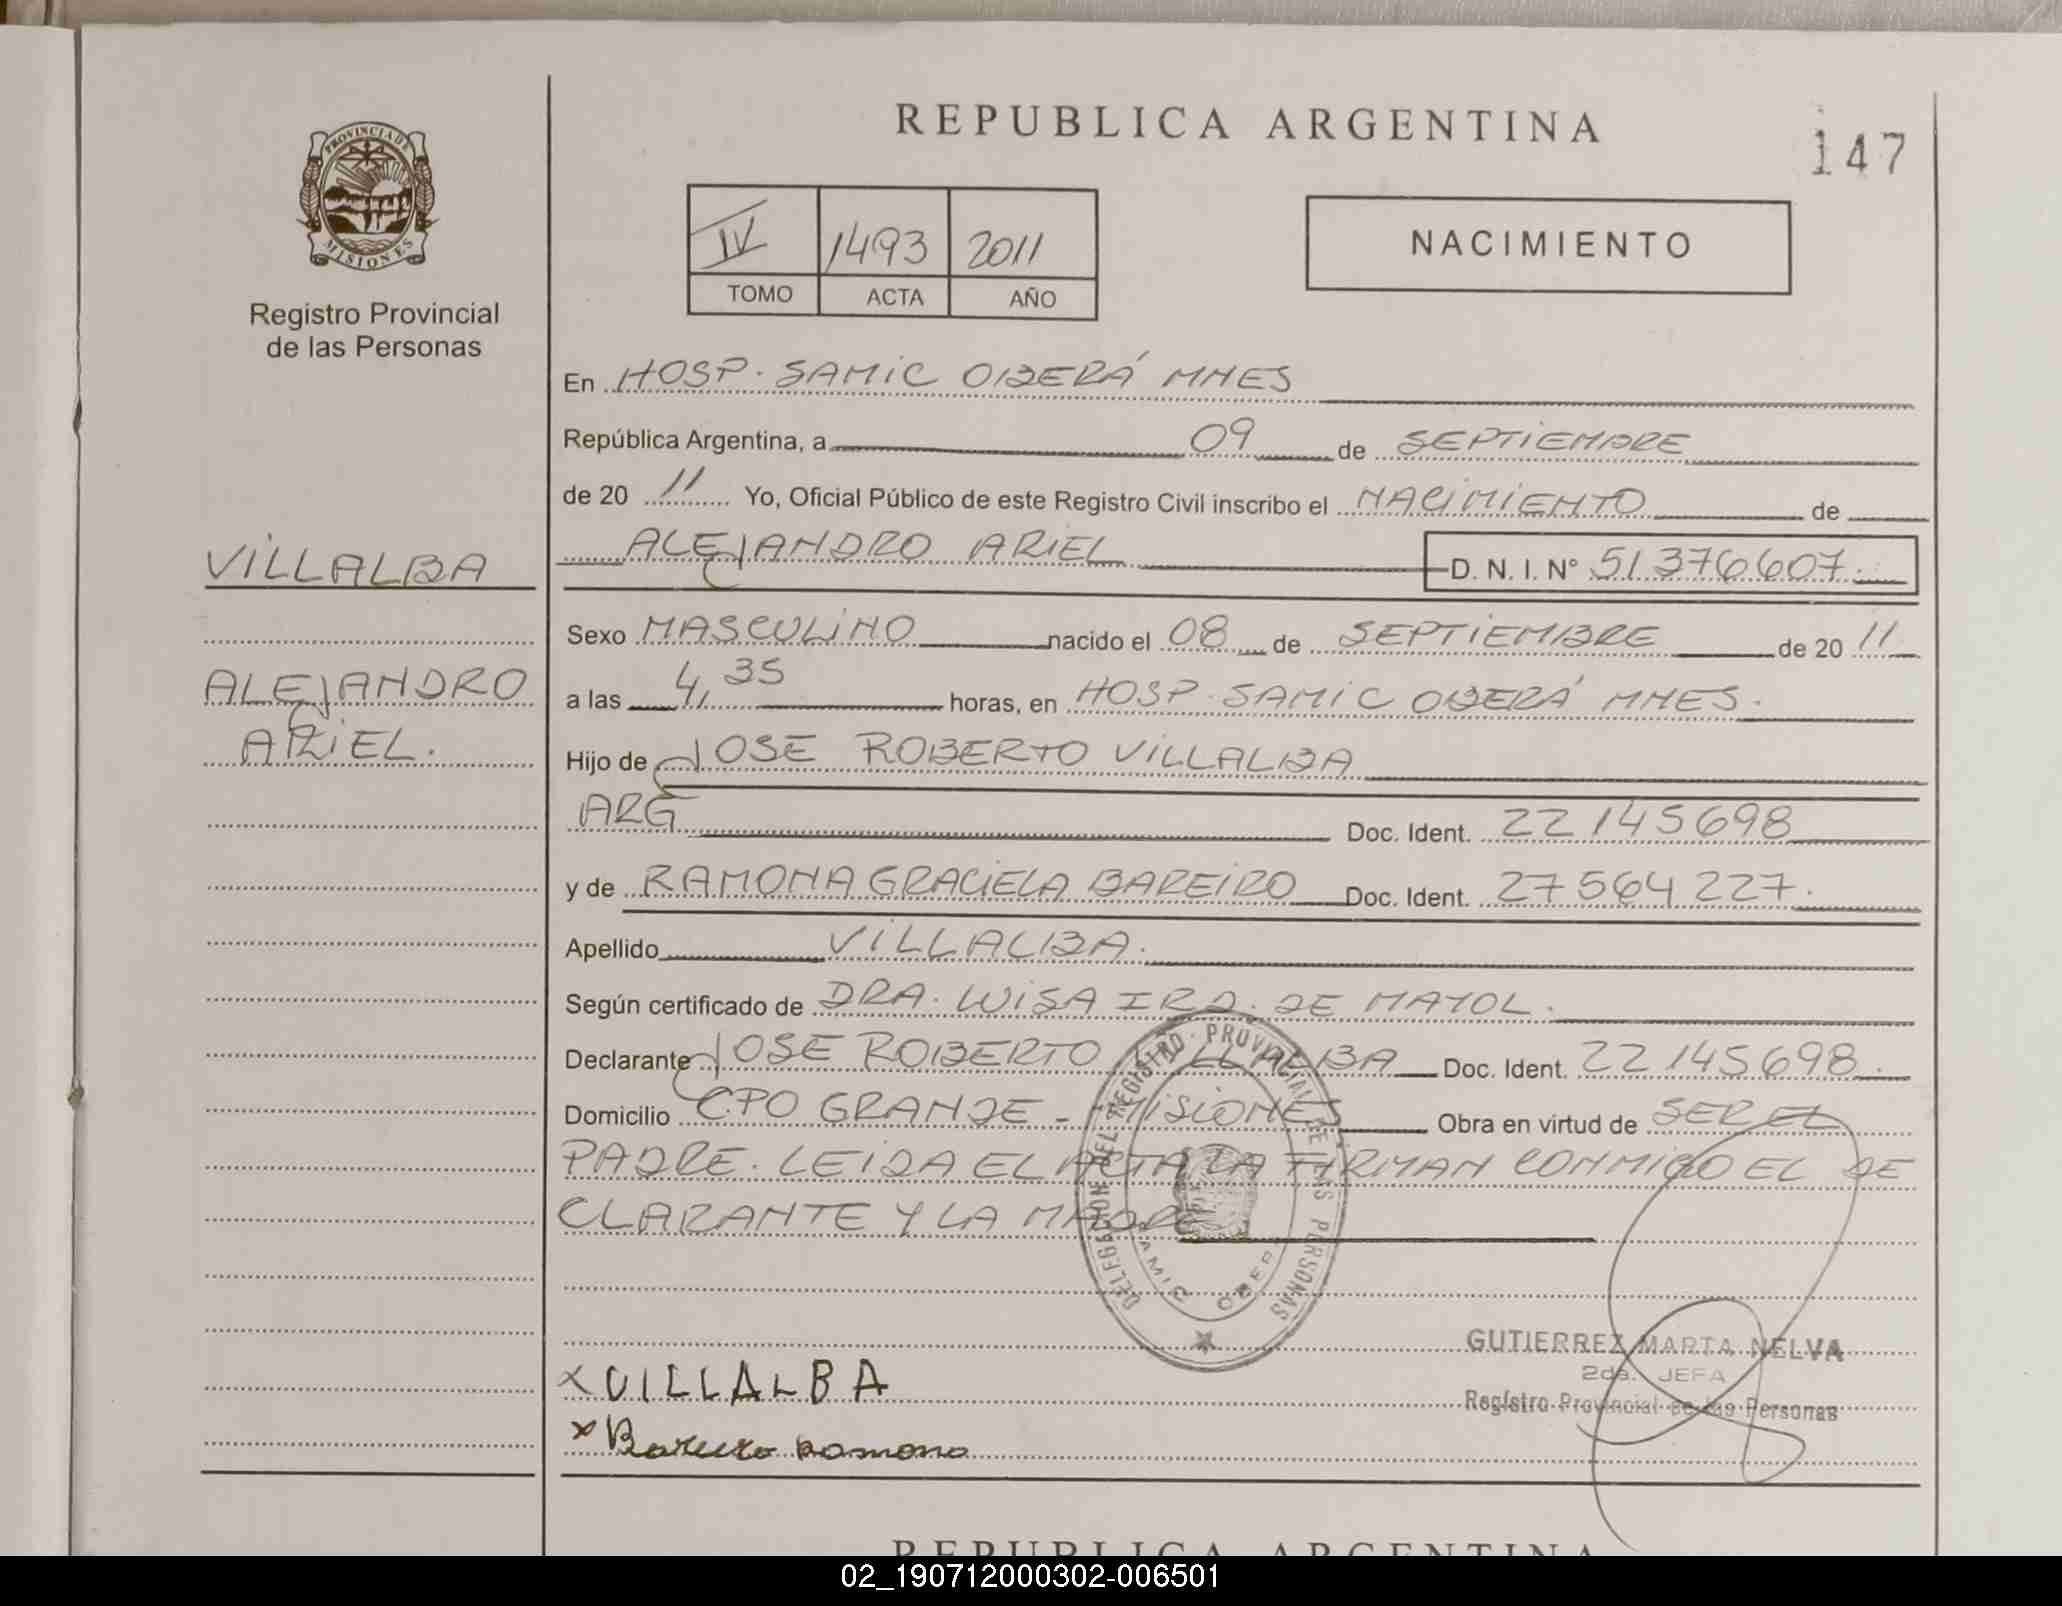 REPUBLICA ARGENTINA
147
PROVINCIA DE MISIONES
Registro Provincial
de las Personas
IV 1493 2011
TOMO ACTA AÑO
NACIMIENTO
En HOSP. SAMIC OBERÁ MNES
República Argentina, a 09 de SEPTIEMBRE
de 20 11 Yo, Oficial Público de este Registro Civil inscribo el NACIMIENTO de
ALEJANDRO ARIEL D. N. I. N° 51376607.
VILLALBA
ALEJANDRO
ARIEL.
Sexo MASCULINO nacido el 08 de SEPTIEMBRE de 20 11
a las 4,35 horas, en HOSP. SAMIC OBERÁ MNES.
Hijo de JOSE ROBERTO VILLALBA
ARG Doc. Ident. 22145698
y de RAMONA GRACIELA BAREIRO Doc. Ident. 27564227.
Apellido VILLALBA.
Según certificado de DRA. LUISA DE MAYOL.
Declarante JOSE ROBERTO VILLALBA Doc. Ident. 22145698.
Domicilio CPO GRANDE - MISIONES Obra en virtud de SER EL
PADRE. LEIDA EL ACTA LA FIRMAN CONMIGO EL DE
CLARANTE Y LA MADRE
DELEGACION DEL REGISTRO PROVINCIAL DE LAS PERSONAS
SAMIC OBERA
GUTIERREZ MARTA NELVA
2da. JEFA
Registro Provincial de las Personas
X VILLALBA
X Bareiro Ramona
REPUBLICA ARGENTINA
02_190712000302-006501